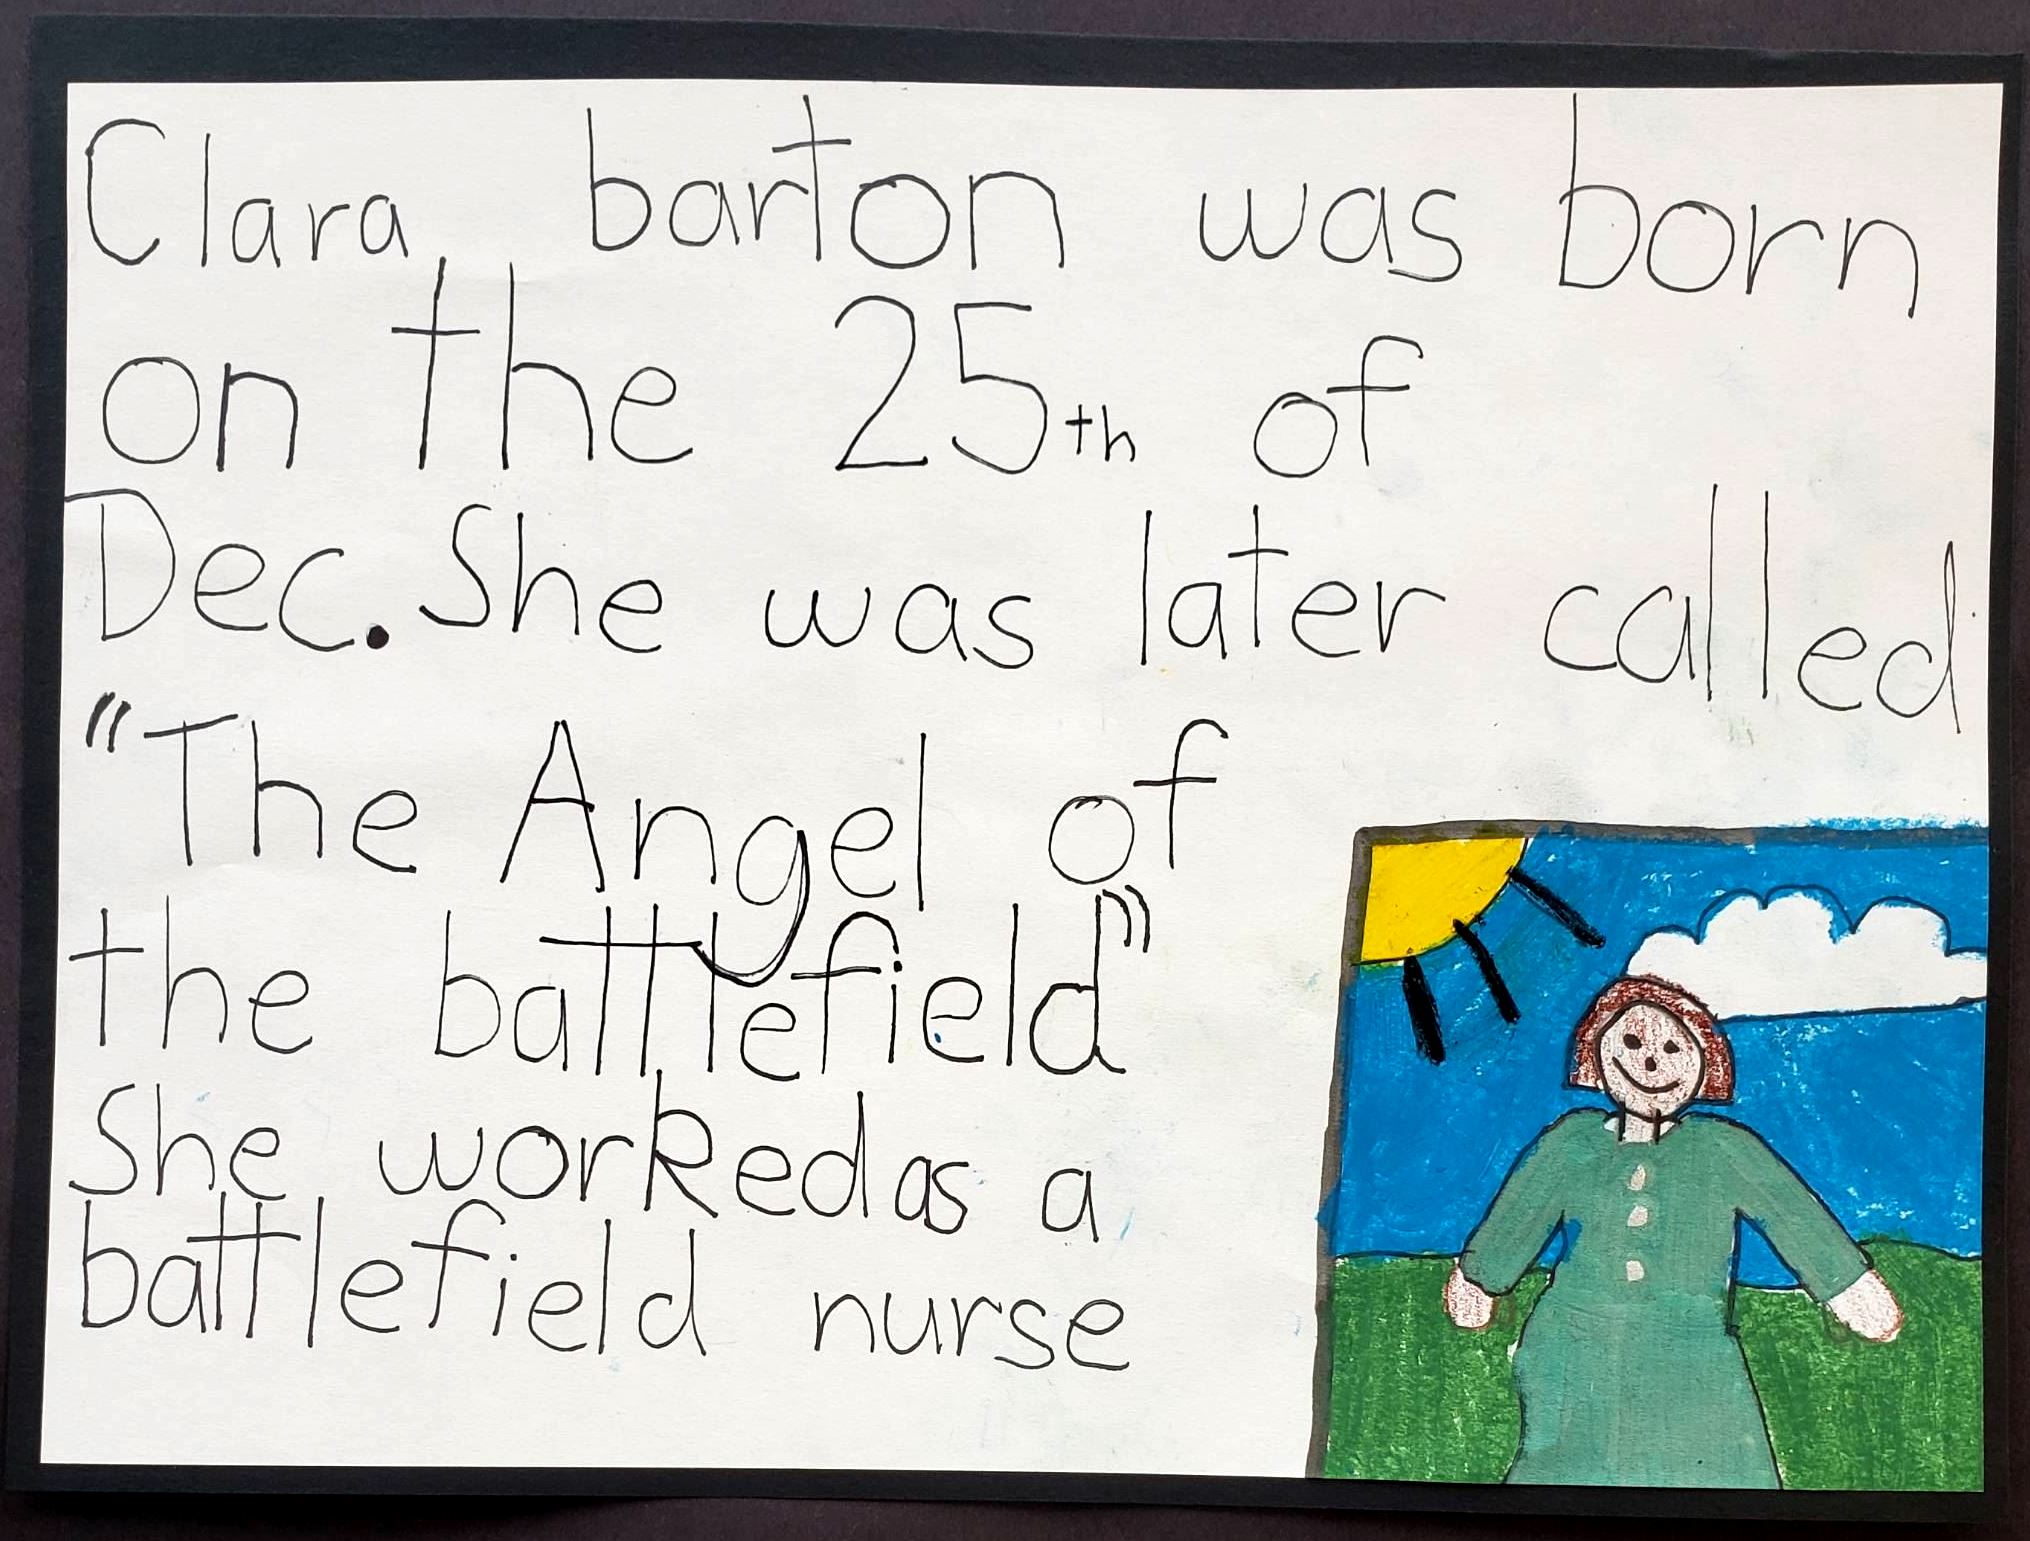 Clara barton was born
on the 25th of
Dec. She was later called
"The Angel of
the battlefield"
She worked as a
battlefield nurse